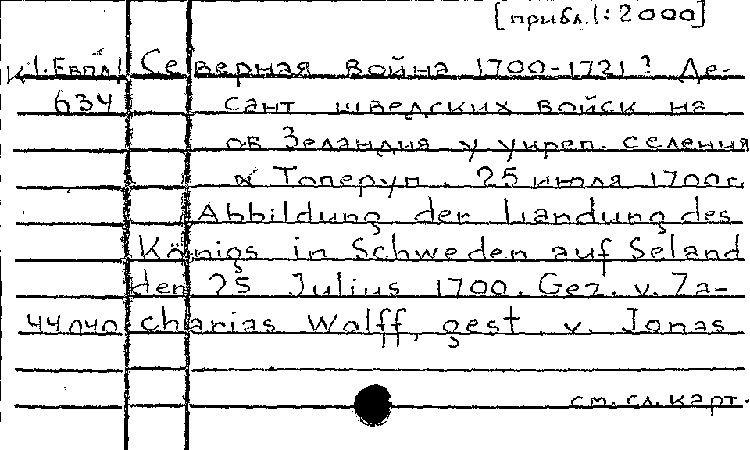 [прибл. 1:2000]
К 1. Евпл 1 Северная война 1700-1721? Де-
634 сант шведских войск на
ов Зеландия у укреп. селения
Топеруп. 25 июля 1700г.
Abbildung der Landung des
Königs in Schweden auf Seland
den 25 Julius 1700. Gez. v. Za-
44040 charias Wolff, gest v. Jonas
см. сл. карт.